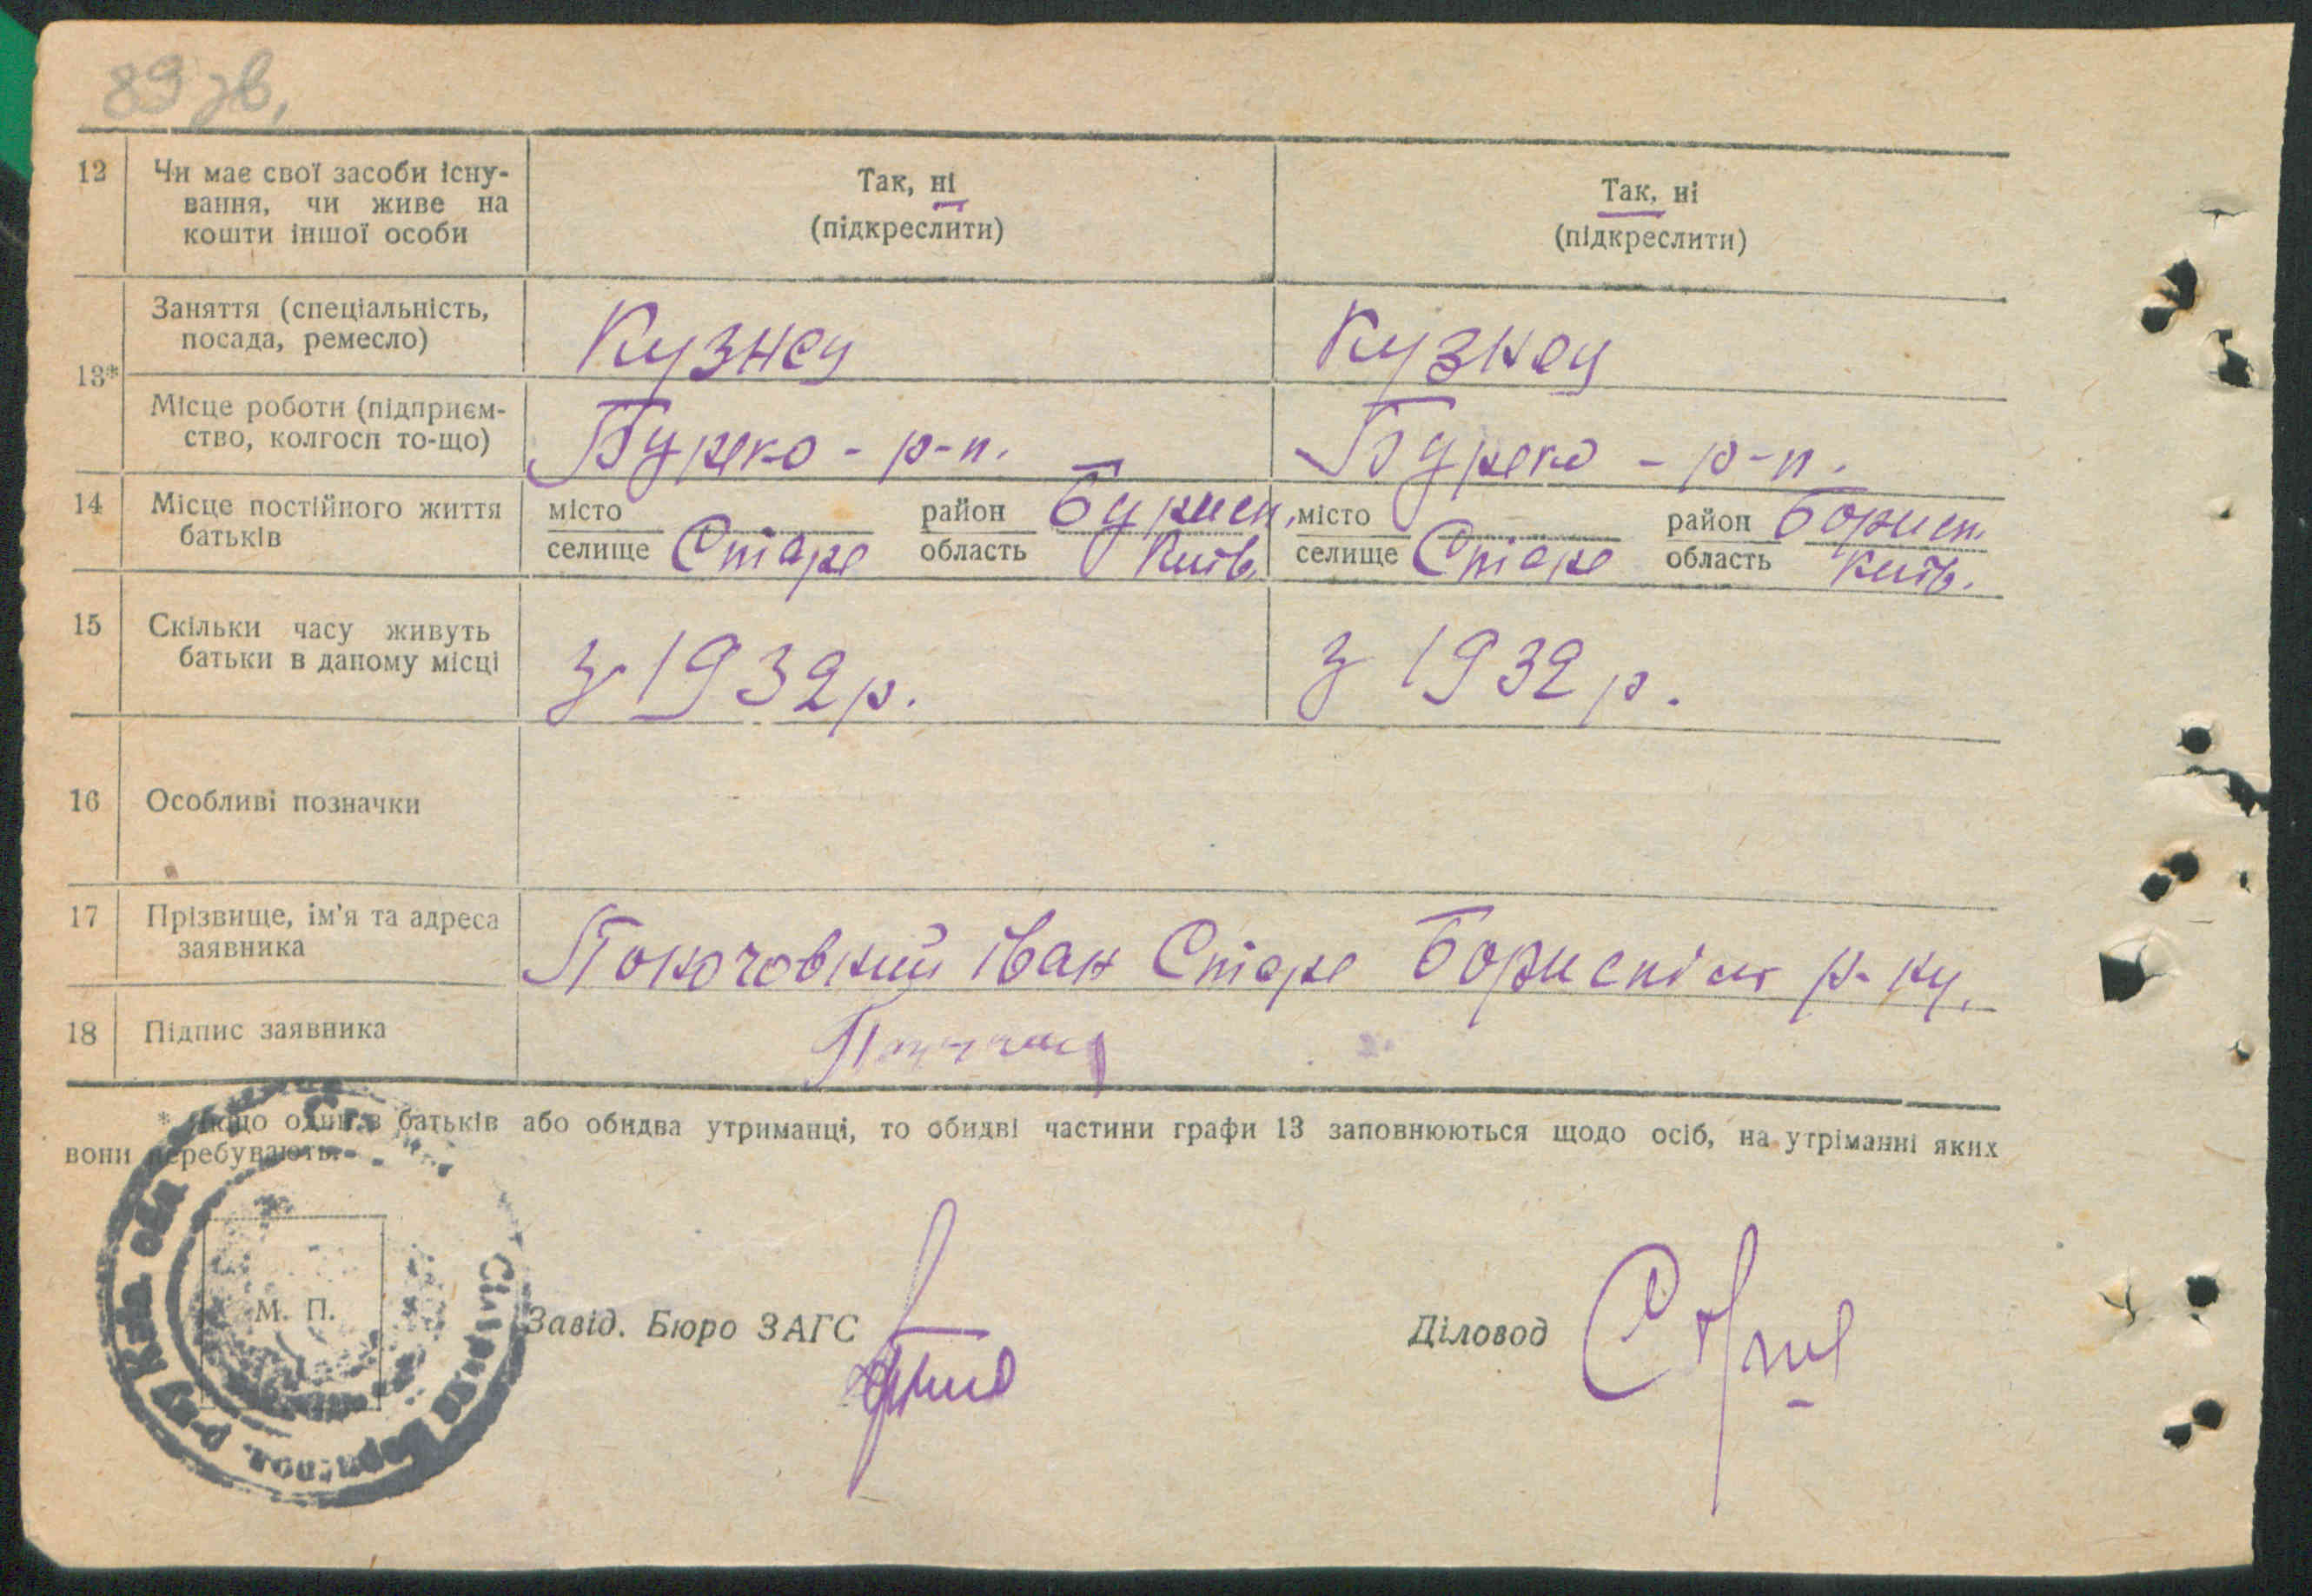 89 зв.
12 Чи має свої засоби існу- Так, ні Так, ні
вання, чи живе на (підкреслити) (підкреслити)
кошти іншої особи
13* Заняття (спеціальність, Кузнец Кузнец
посада, ремесло)
Місце роботи (підприєм- р-п. р-п.
ство, колгосп то-що)
14 Місце постійного життя місто район місто район Борисп.
батьків селище Старе область Київ. селище Старе область Київ.
15 Скільки часу живуть з 1932 р. з 1932 р.
батьки в даному місці
16 Особливі позначки
17 Прізвище, ім'я та адреса Іван Старе Бориспіль р-ну.
заявника
18 Підпис заявника
* Якщо один з батьків або обидва утриманці, то обидві частини графи 13 заповнюються щодо осіб, на утріманні яких
вони перебувають.
М. П. Завід. Бюро ЗАГС Діловод